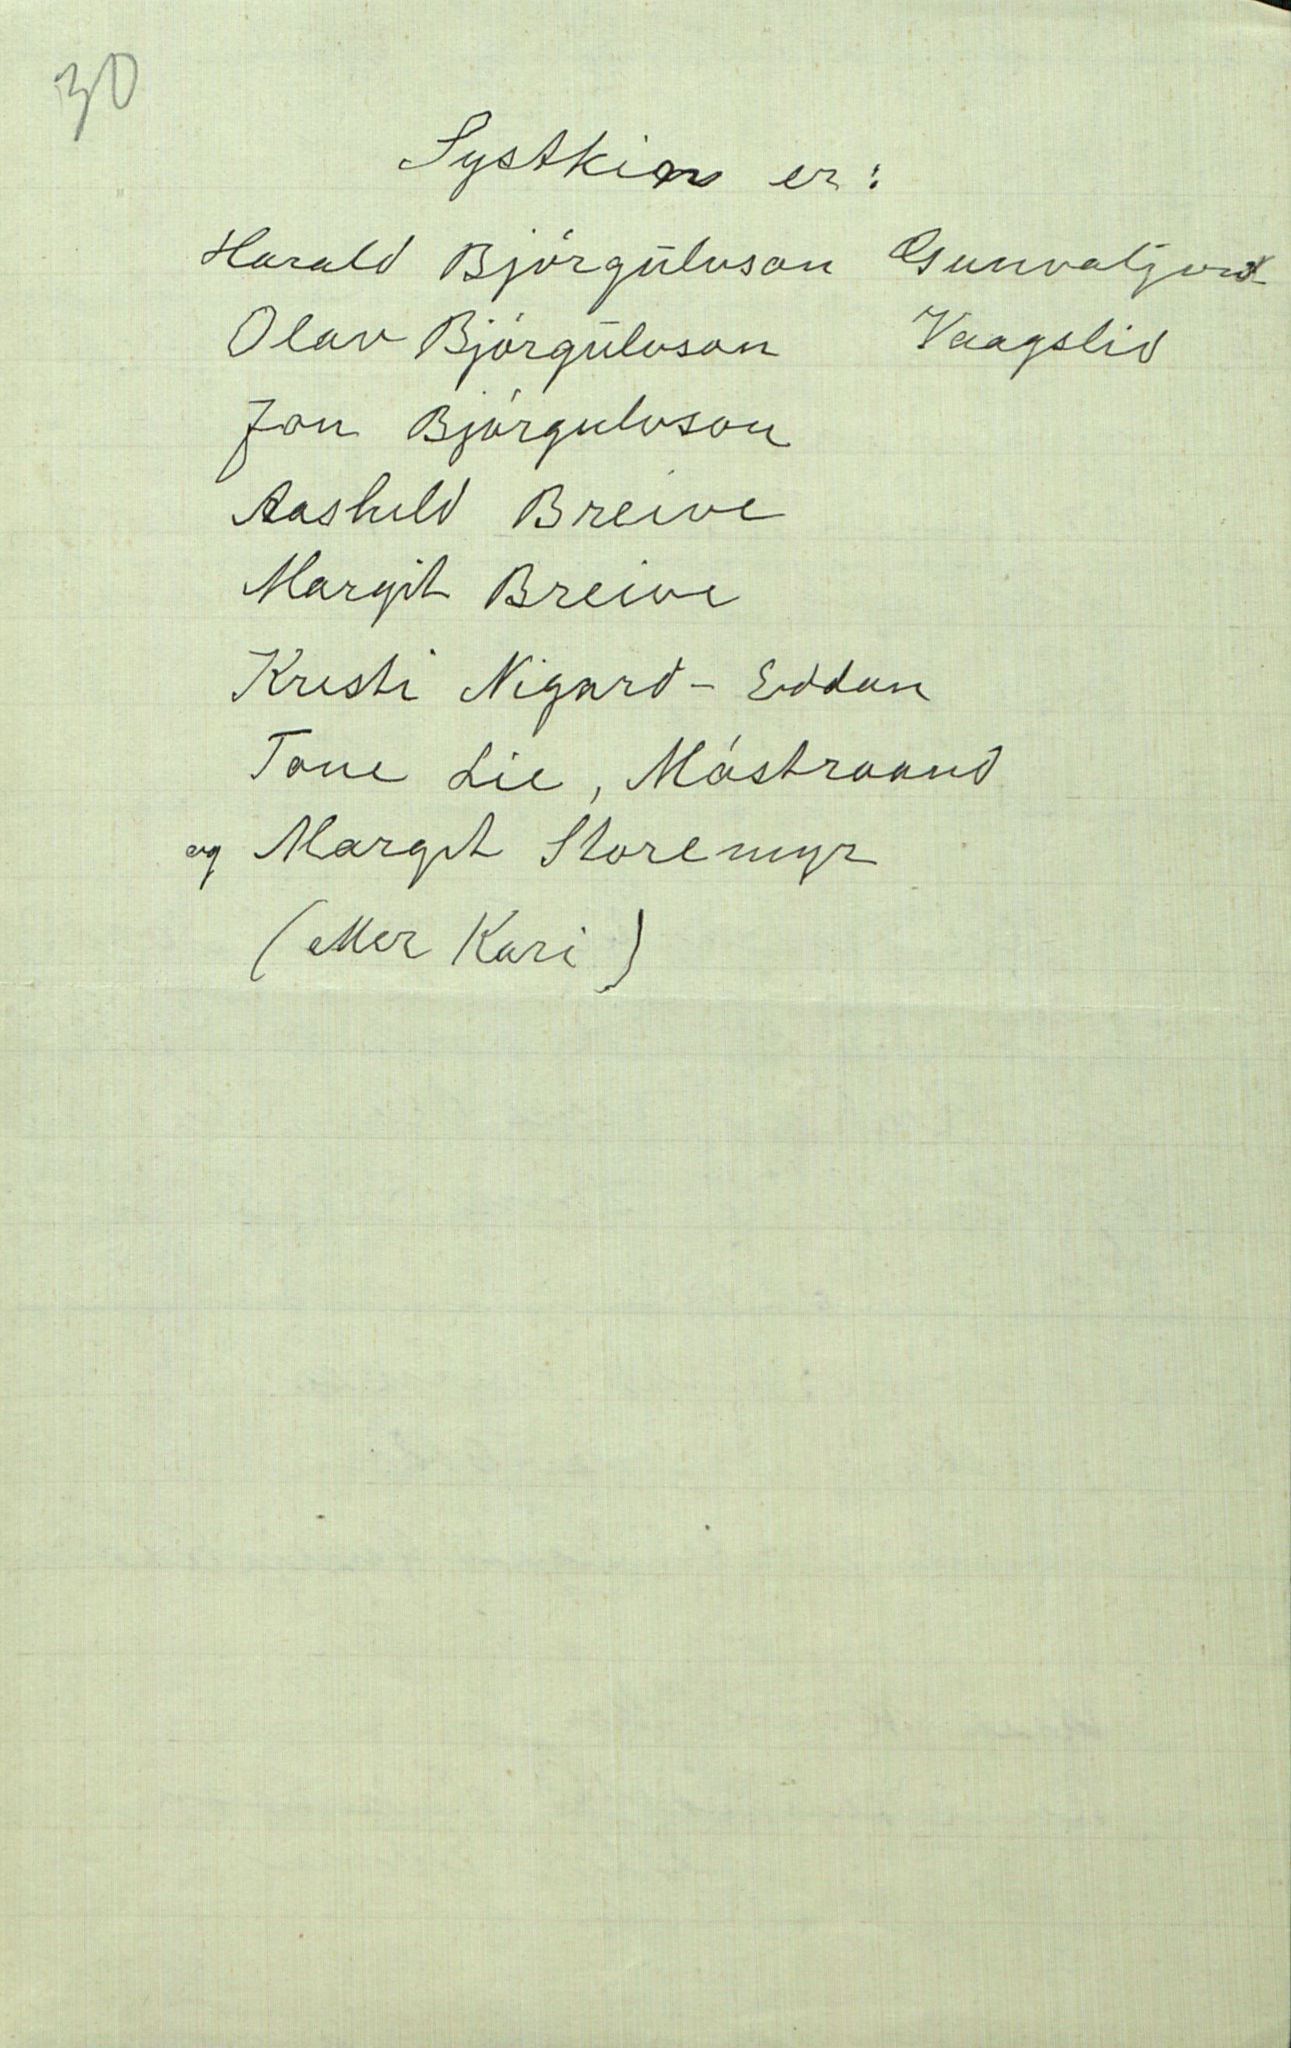 30
Systkin er:
Harald Bjórgúlvson Gunvaljord
Olav Bjórgúlvson Vaagslid
Jon Bjórgulvson
Aashild Breive
Margit Breive
Kristi Nigard - Eddan
Tone Lie, Móstraand
og Margit Storemyr
(eller Kari)